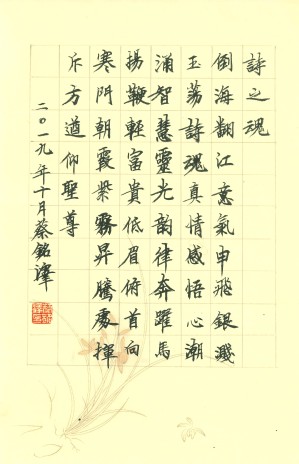 詩之魂
倒海翻江意氣申飛銀濺
玉蕩詩魂真情感悟心潮
涌智慧靈光韵律奔躍馬
揚鞭輕富貴低眉俯首向
寒門朝霞紫霧昇騰處揮
斥方遒仰聖尊
二〇一九年十月蔡銘澤